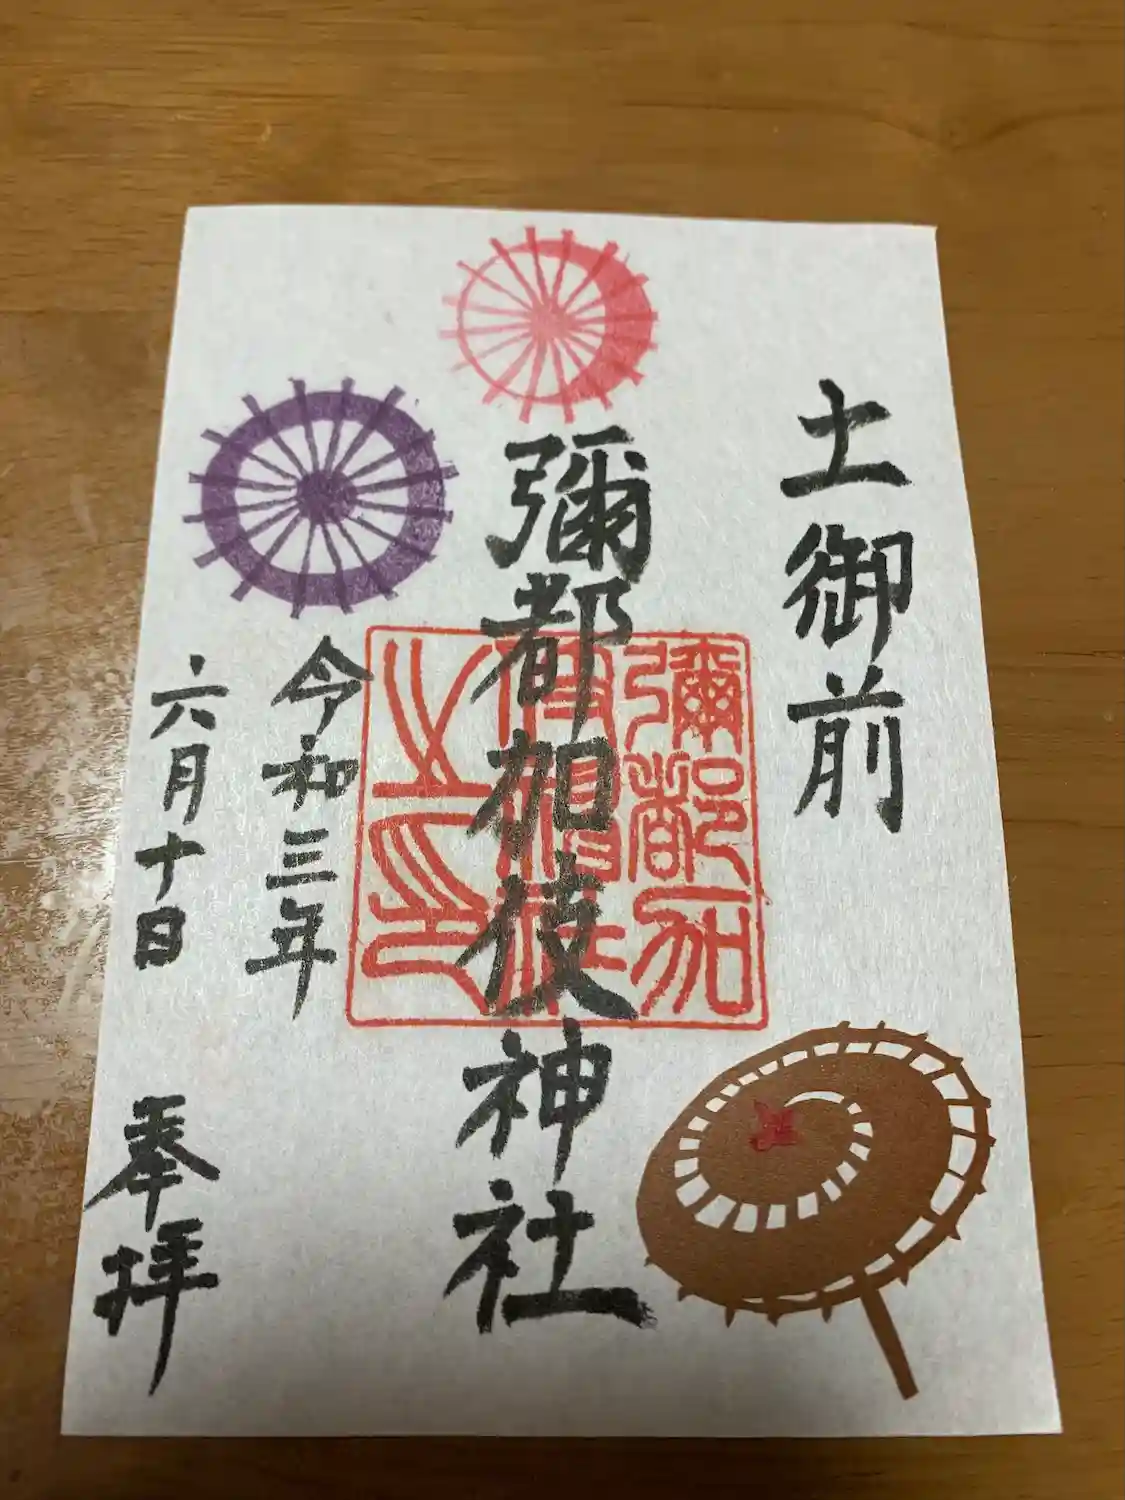 土御前
彌都加伎神社
令和三年
六月十日 奉拝
彌都加
伎神社
之印